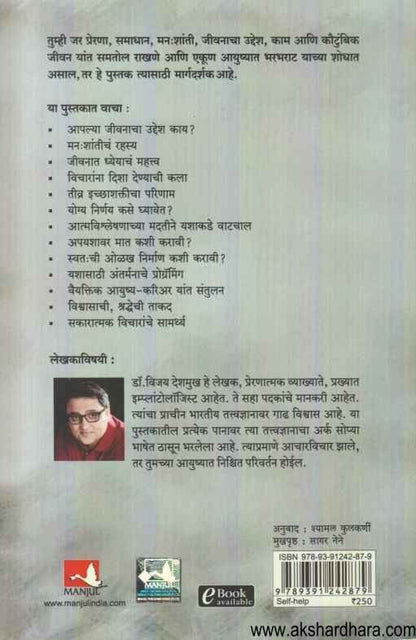 तुम्ही जर प्रेरणा, समाधान, मनःशांती, जीवनाचा उद्देश, काम आणि कौटुंबिक
जीवन यांत समतोल राखणे आणि एकूण आयुष्यात भरभराट याच्या शोधात
असाल, तर हे पुस्तक त्यासाठी मार्गदर्शक आहे.
या पुस्तकात वाचा :
▪ आपल्या जीवनाचा उद्देश काय?
▪ मनःशांतीचं रहस्य
▪ जीवनात ध्येयाचं महत्त्व
▪ विचारांना दिशा देण्याची कला
▪ तीव्र इच्छाशक्तीचा परिणाम
▪ योग्य निर्णय कसे घ्यावेत?
▪ आत्मविश्लेषणाच्या मदतीने यशाकडे वाटचाल
▪ अपयशावर मात कशी करावी?
▪ स्वतःची ओळख निर्माण कशी करावी?
▪ यशासाठी अंतर्मनाचे प्रोग्रॅमिंग
▪ वैयक्तिक आयुष्य-करिअर यांत संतुलन
▪ विश्वासाची, श्रद्धेची ताकद
▪ सकारात्मक विचारांचे सामर्थ्य
लेखकाविषयी :
डॉ. विजय देशमुख हे लेखक, प्रेरणात्मक व्याख्याते, प्रख्यात
इम्प्लांटोलॉजिस्ट आहेत. ते सहा पदकांचे मानकरी आहेत.
त्यांचा प्राचीन भारतीय तत्त्वज्ञानावर गाढ विश्वास आहे. या
पुस्तकातील प्रत्येक पानावर त्या तत्त्वज्ञानाचा अर्क सोप्या
भाषेत ठासून भरलेला आहे. त्याप्रमाणे आचारविचार झाले,
तर तुमच्या आयुष्यात निश्चित परिवर्तन होईल.
अनुवाद : श्यामल कुलकर्णी
मुखपृष्ठ : सागर नेने
MANJUL
www.manjulindia.com
MANJUL
eBook
available
ISBN 978-93-91242-87-9
9 789391 242879
Self-help ₹250
www.akshardhara.com